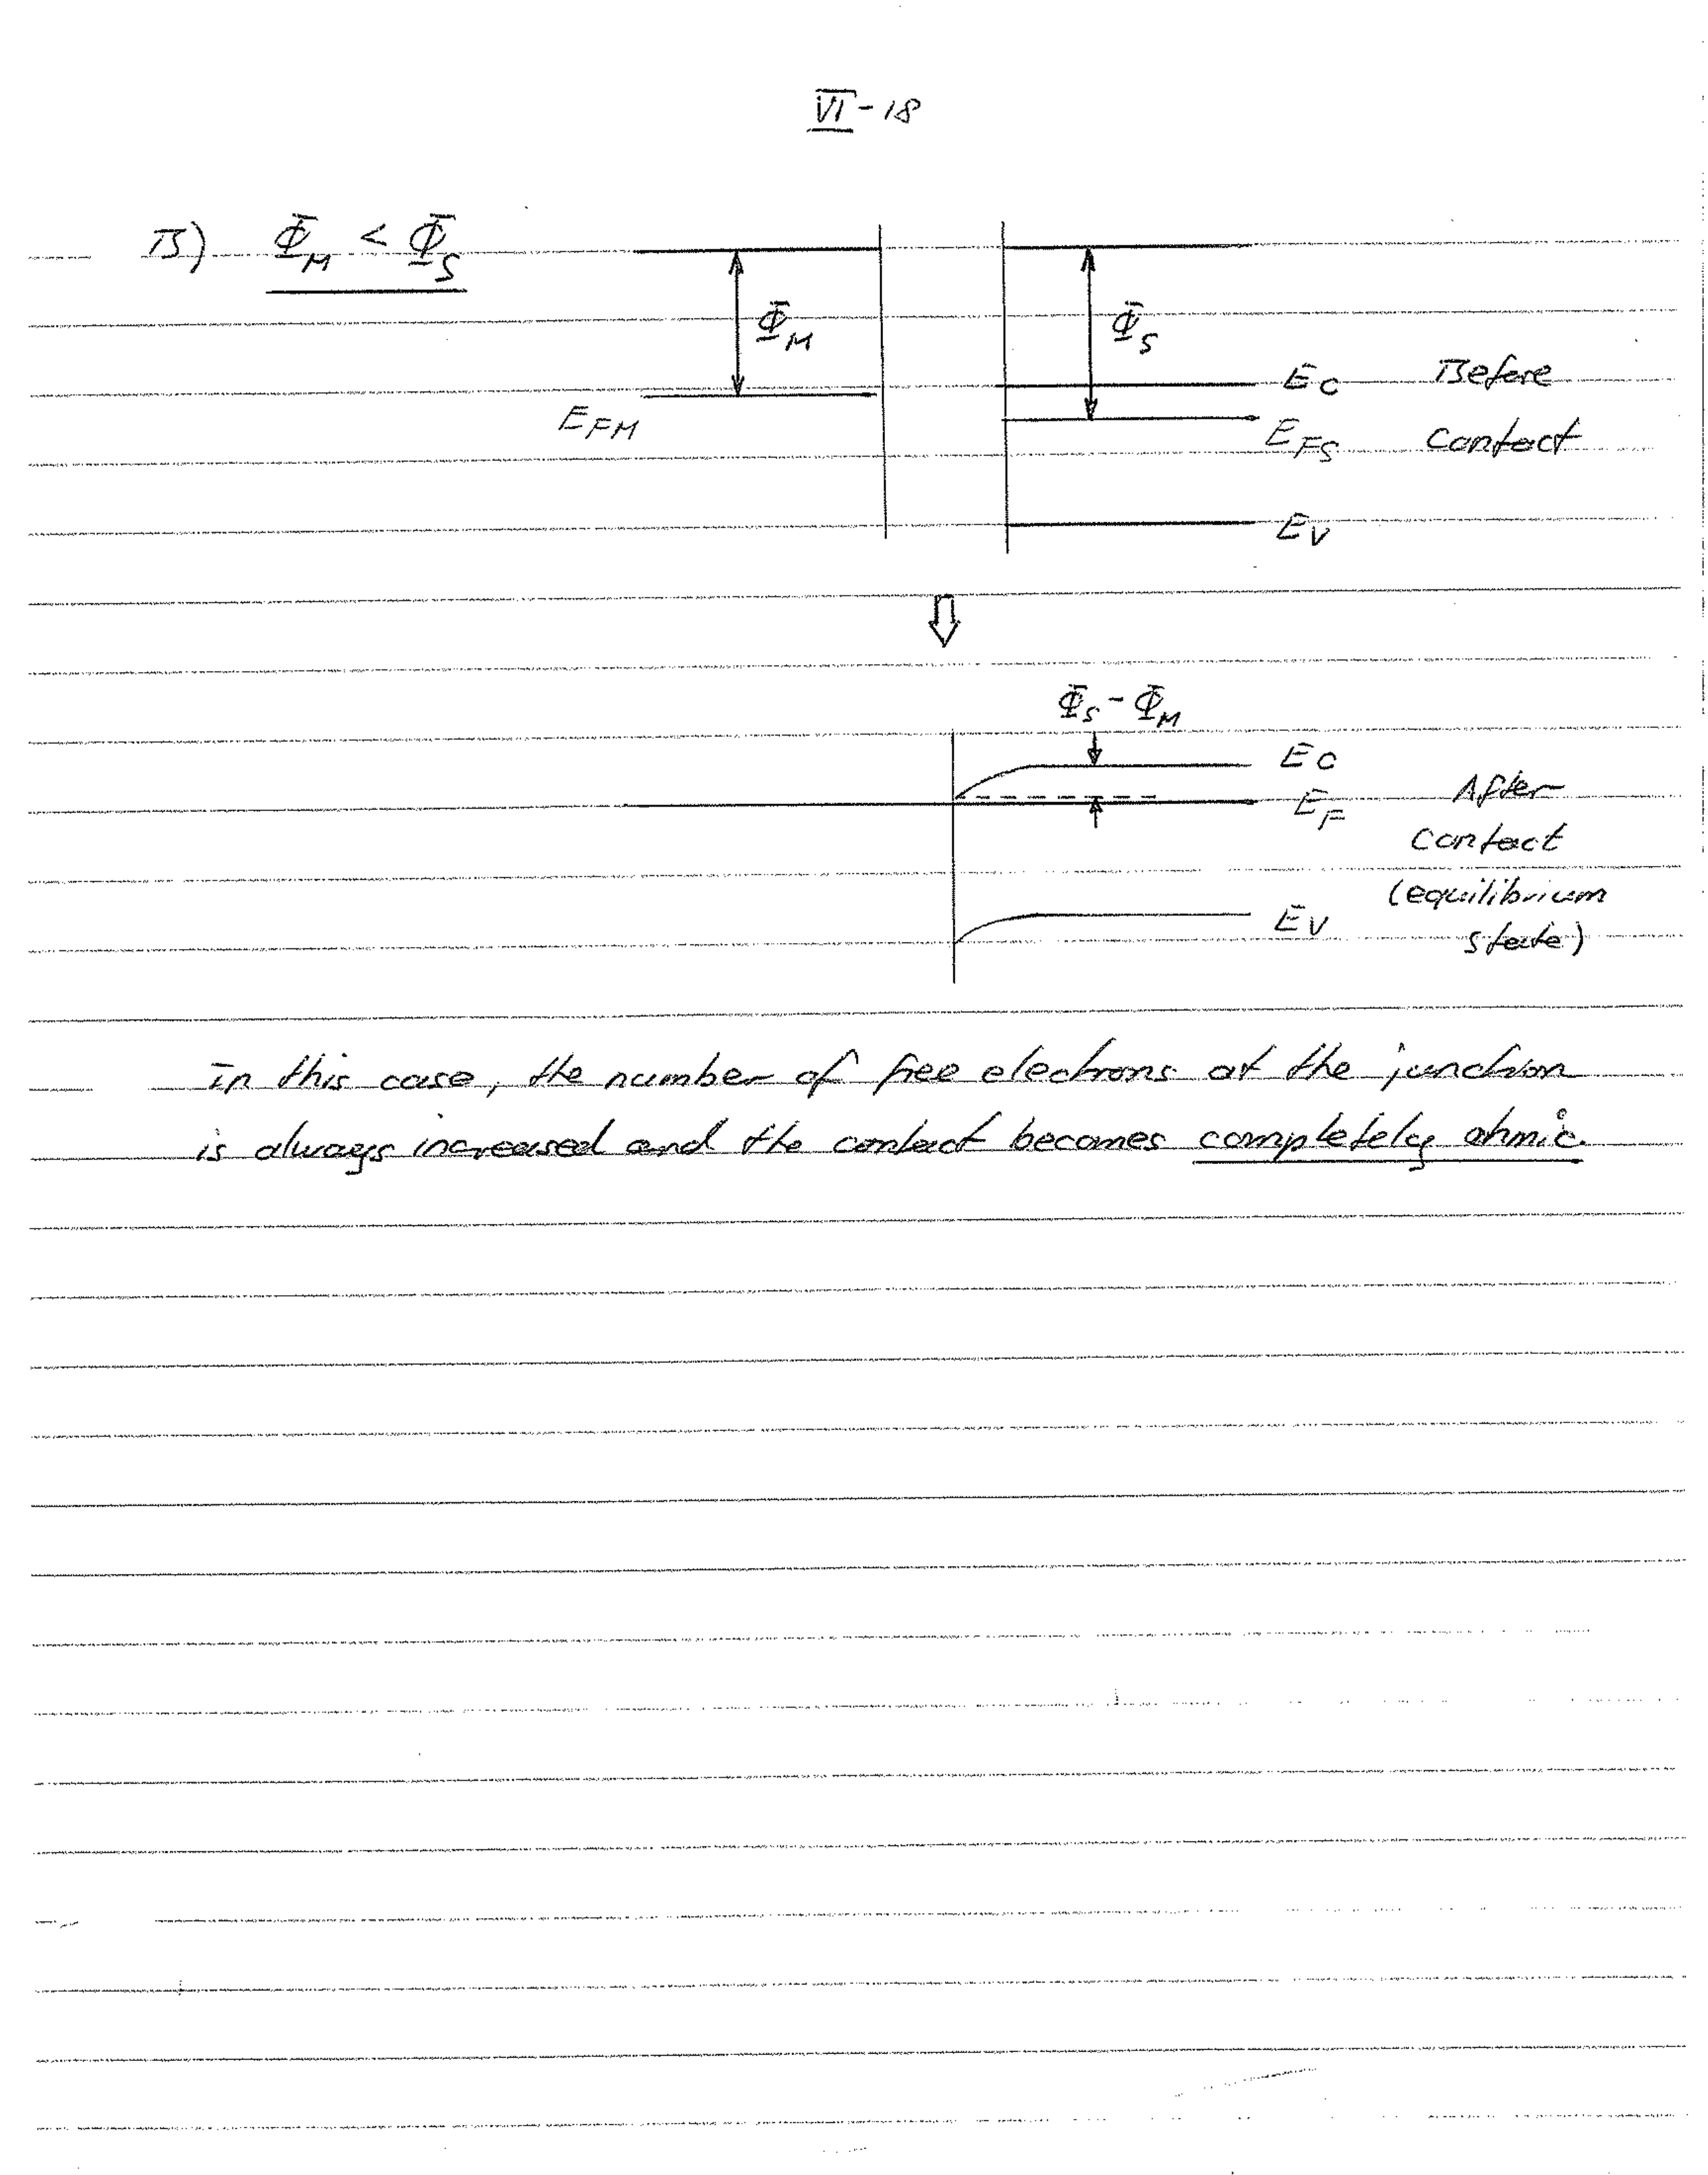 VI-18
B) Φ_M < Φ_S
Φ_M
Φ_S
E_C Before
E_FM
E_FS contact
E_V
Φ_S - Φ_M
E_C
E_F After
contact
(equilibrium
E_V
state)
In this case, the number of free electrons at the junction
is always increased and the contact becomes completely ohmic.